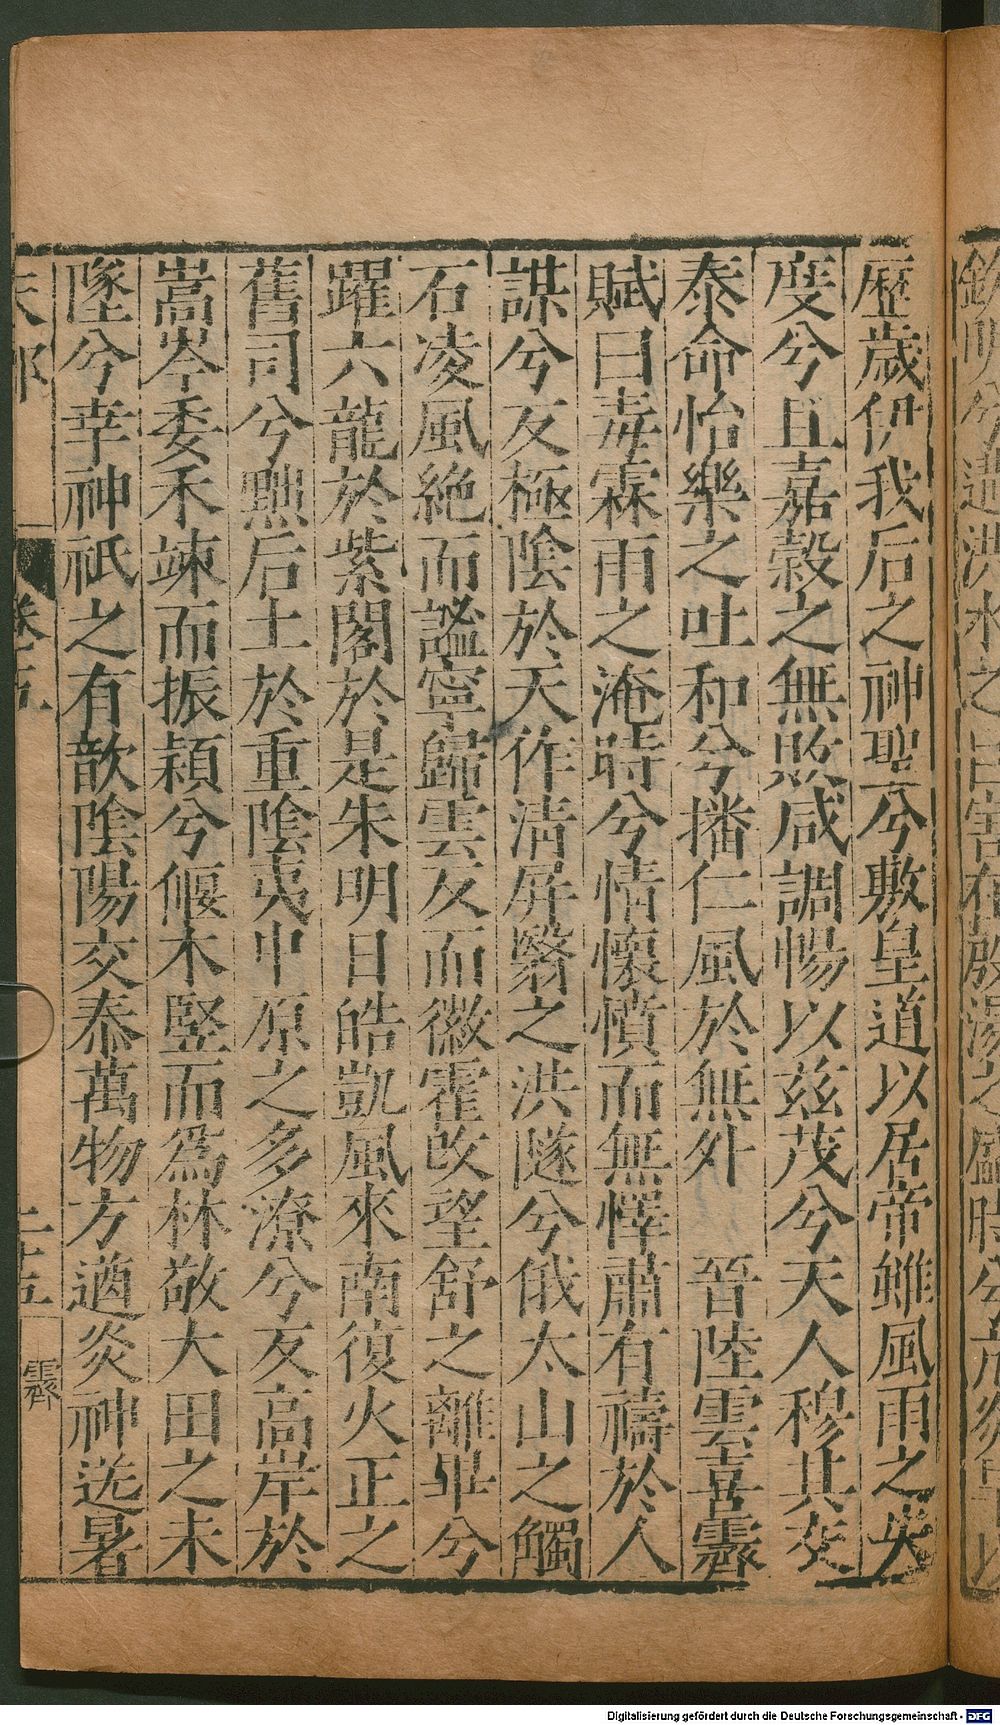 歷歲伊我后之神聖兮敷皇道以居帝雖風雨之失
度兮且嘉穀之無敗咸調暢以茲茂兮天人穆其交
泰命怡樂之吐和兮播仁風於無外 晉陸雲喜霽
賦曰毒霖雨之淹時兮情懷憤而無懌肅有禱於人
謀兮反極陰於天作淸屏翳之洪隧兮俄太山之觸
石凌風絶而謐寧歸雲反而徽霍攺望舒之離畢兮
躍六龍於紫閣於是朱明日皓凱風來南復火正之
舊司兮黜后土於重陰夷中原之多潦兮反高岸於
嵩岑委禾竦而振穎兮偃木竪而爲林敬大田之未
墜兮幸神祇之有歆陰陽交泰萬物方遒炎神送暑
天部
卷二
二十五
霽
Digitalisierung gefördert durch die Deutsche Forschungsgemeinschaft - DFG